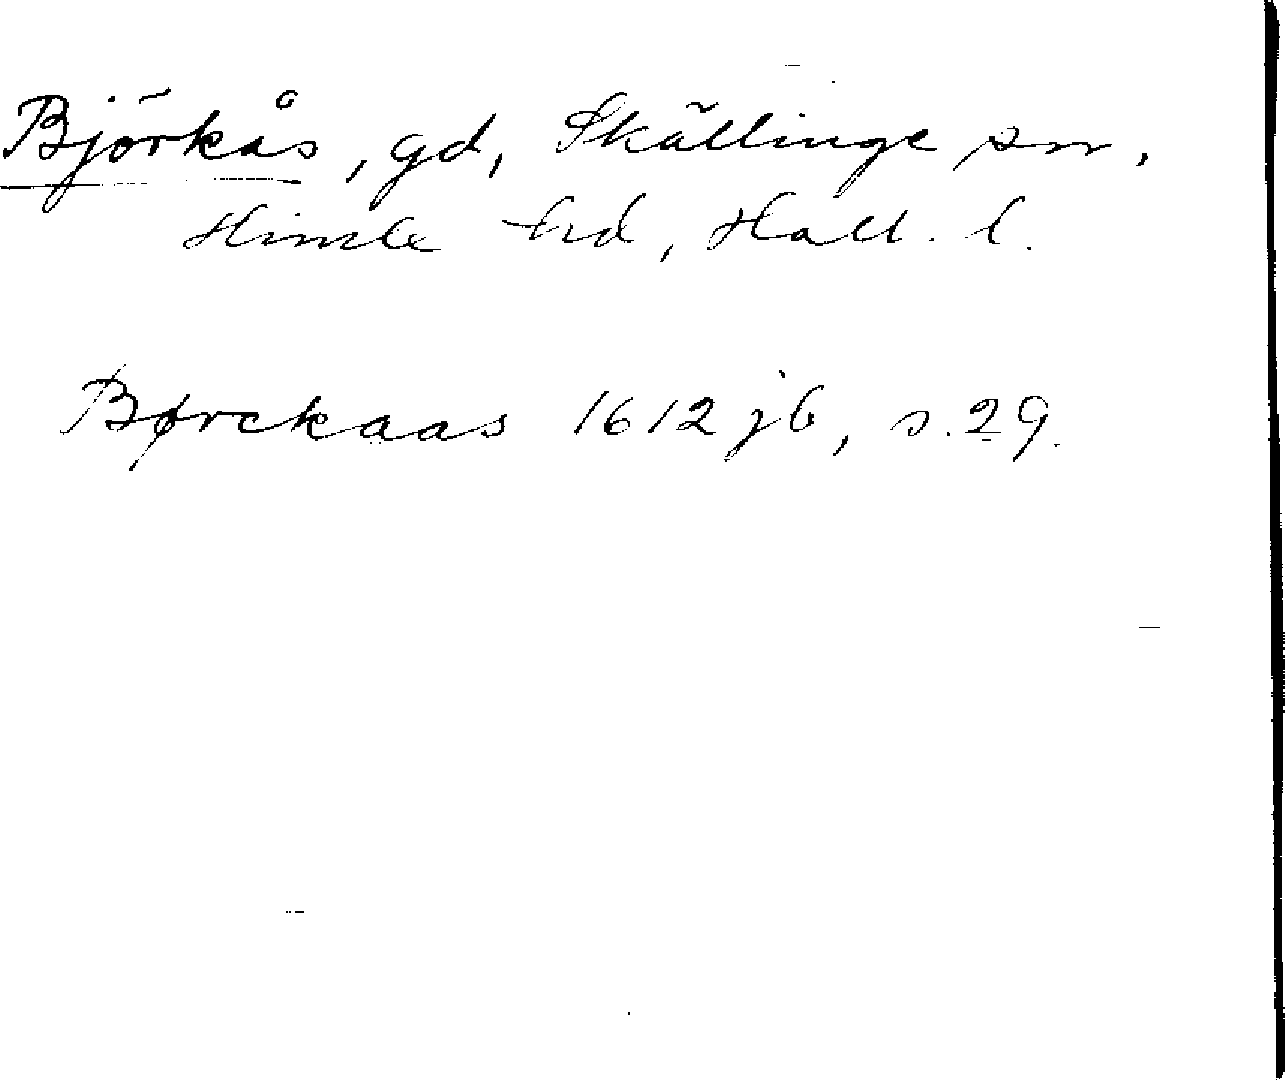 Björkås, gd, Skällinge sn,
Himle hd, Hall. l.
Børckaas 1612 jb, s. 29.